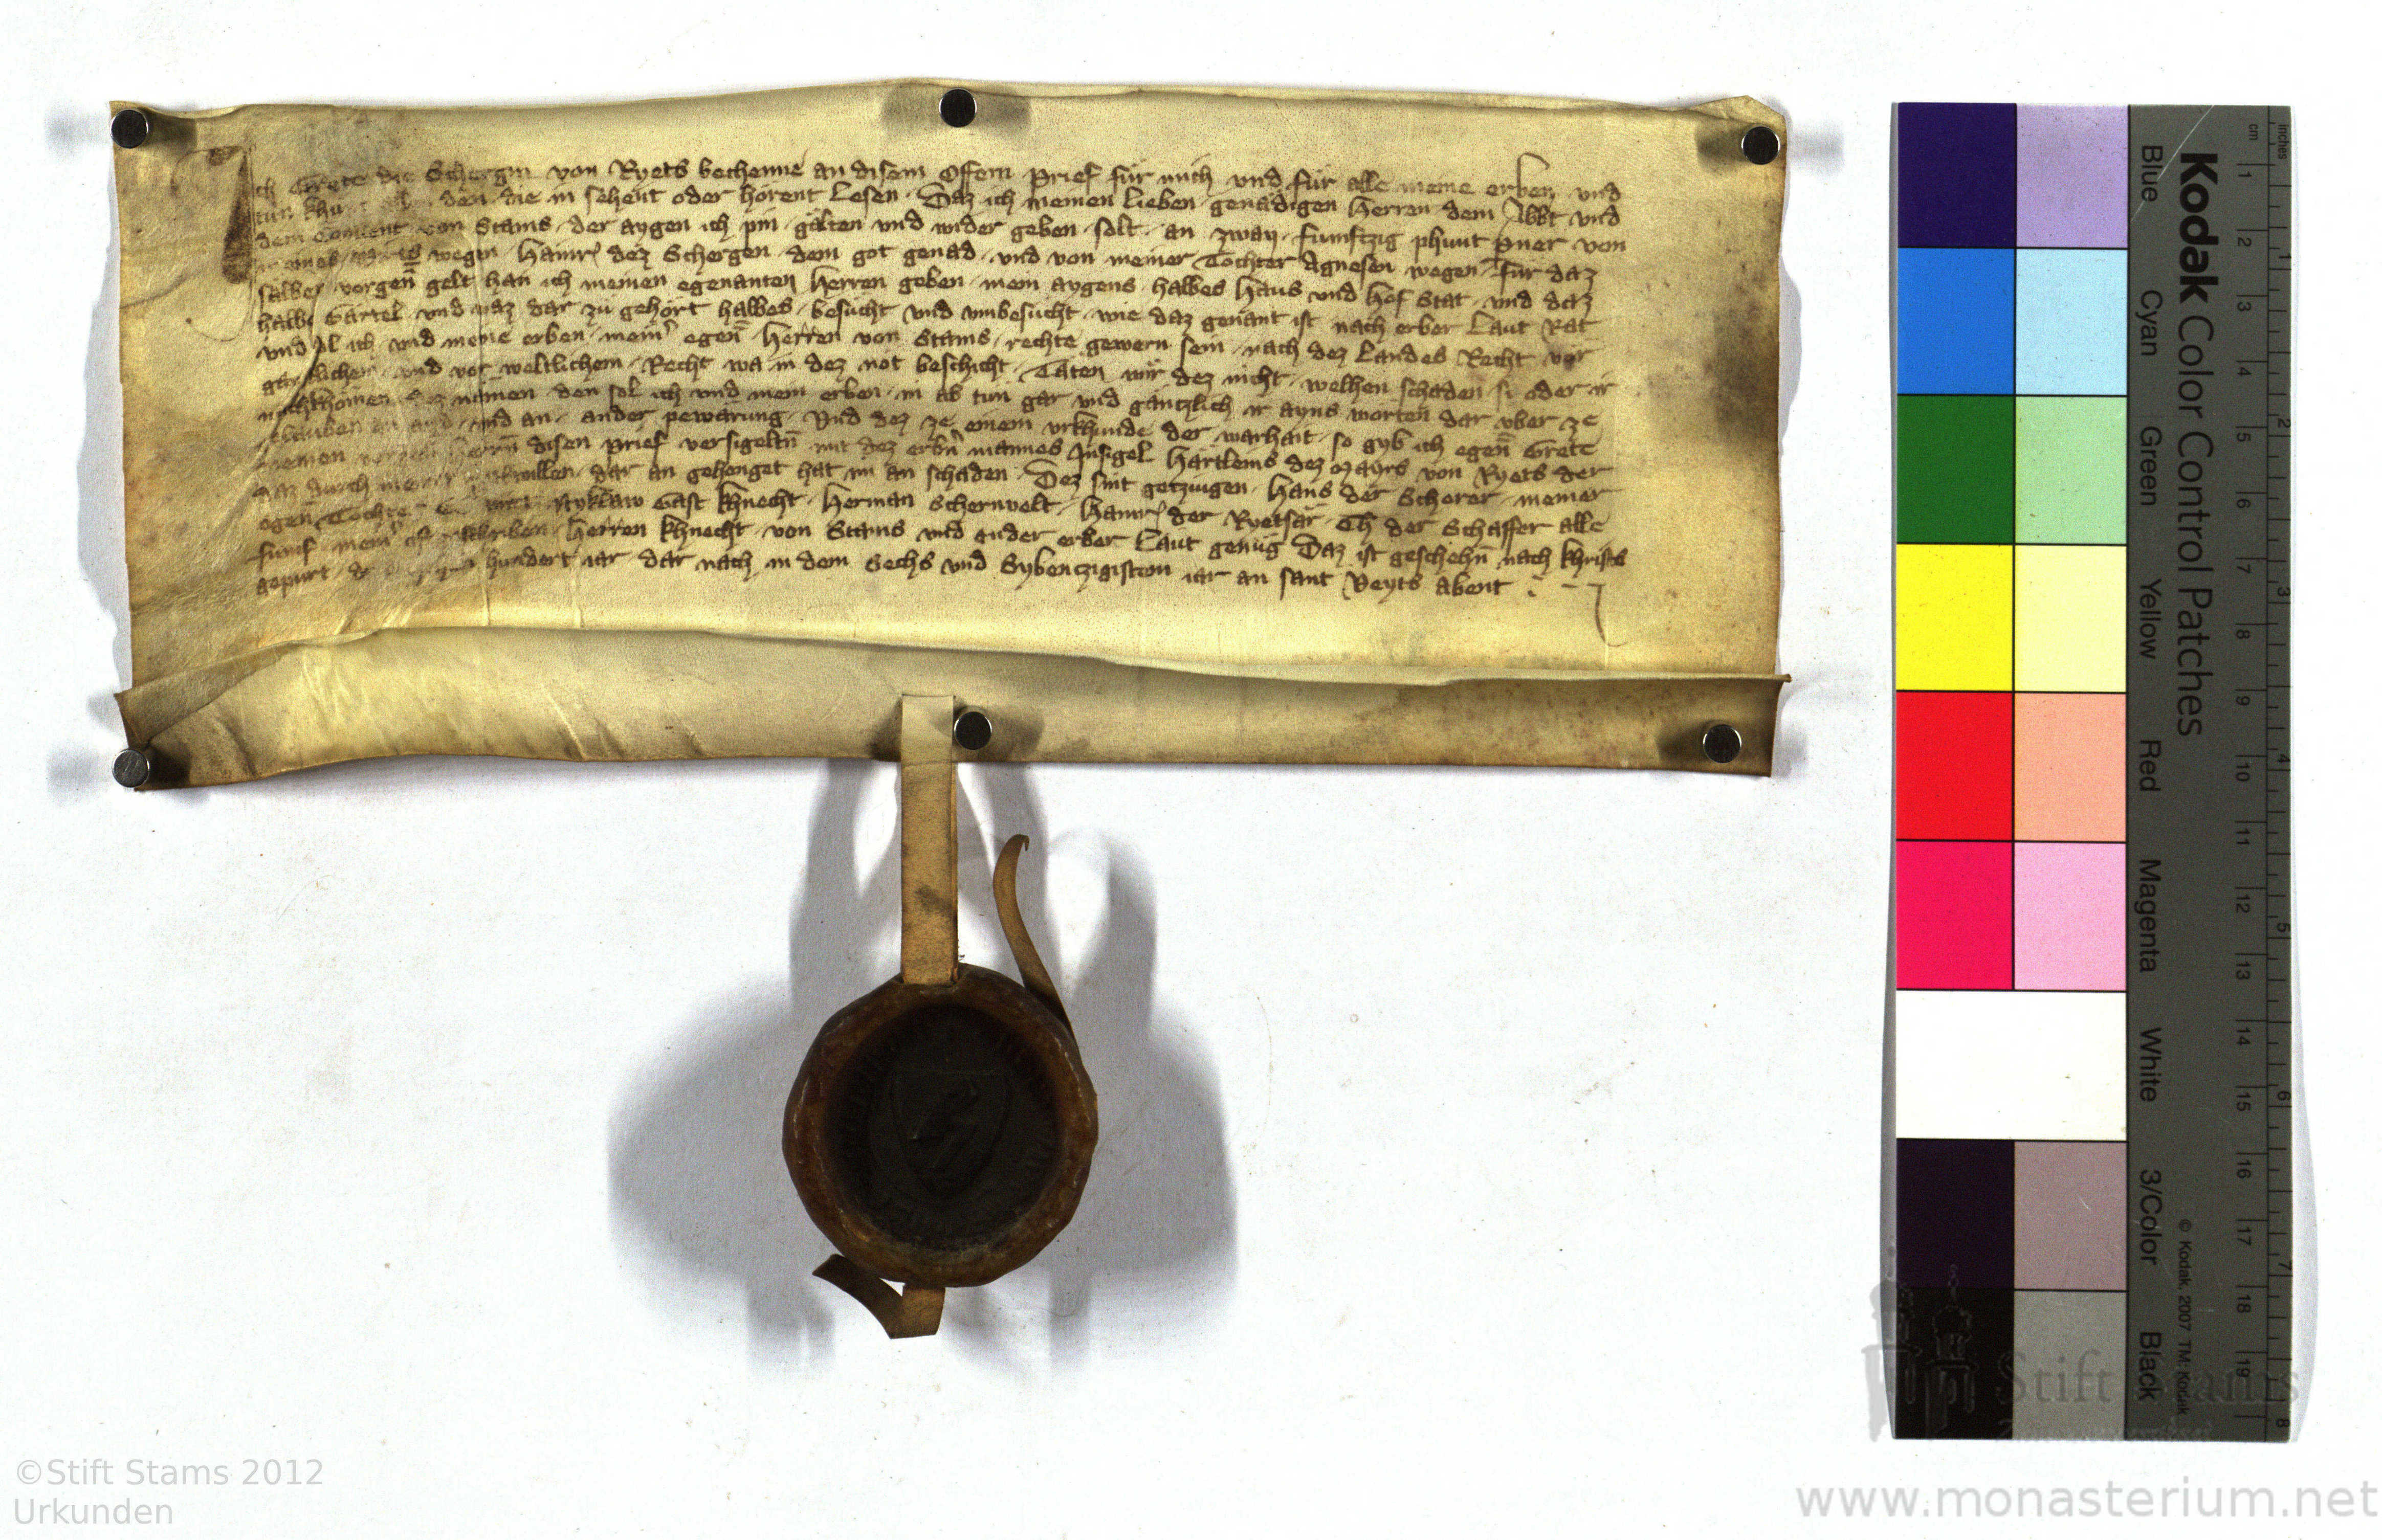 Ich Grete die Schergin von Ryets bechenne an disem offem prief für mich vnd für alle meine erben vnd
tun den die in sehent oder hörent lesen Daz ich meinen lieben genädigen Herren dem Abbt vnd
dem Conuent von Stams der aygen ich pin gälten vnd wider geben solt an zway funftzig phunt pner von
wegen Hainr dez Schergen dem got genad vnd von meiner Tochter Agnesen wegen für daz
selber vorgen̄ gelt han ich meinen egenanten Herren geben mein aygens halbes Haus vnd Hof Stat vnd daz
halbs Gärtel vnd waz dar zü gehört halbes besücht vnd vmbesücht wie daz genant ist nach erber Laut Rat
vnd sol ich vnd meine erben mein' egen̄ Herren von Stams rechte gewern sein nach dez Landes Recht vor
gaistlichem vnd vor weltlichem Recht wa in dez not beschicht Täten wir dez nicht welhen schaden si oder ir
nachkhomen dez nämen den sol ich vnd mein erben in ab tün gar vnd gäntzlich ir ayns worten dar vber ze
gelauben an ayd vnd an ander pewärung Vnd dez ze einem vrkhunde der warhait so gyb ich egen̄ Grete
meinen Herrn̄ disen prief versigeltn̄ mit dez erbn̄ mannes Insigel Härtleins dez Mayrs von Ryets der
daz durch willen dar an gehenget hat im an schaden Dez sint getzüugen Hans der Scherer meiner
egen̄ Tochter Nyklaw Gast khnecht Herman Schernvelt Hainr der Ryetsär Ch der Schaffer alle
fünf mein' Herren khnecht von Stams vnd ander erber Laut genüg Daz ist geschehn̄ nach khrists
gepurt hundert iar dar nach in dem Sechs vnd Sybenczigistem iar an sant Veyts Abent
Kodak Color Control Patches
Blue Cyan Green Yellow Red Magenta White 3/Color Black
© Kodak, 2007 TM: Kodak
cm 1 2 3 4 5 6 7 8 9 10 11 12 13 14 15 16 17 18 19
inches 1 2 3 4 5 6 7 8
Stift Stams
©Stift Stams 2012
Urkunden
www.monasterium.net